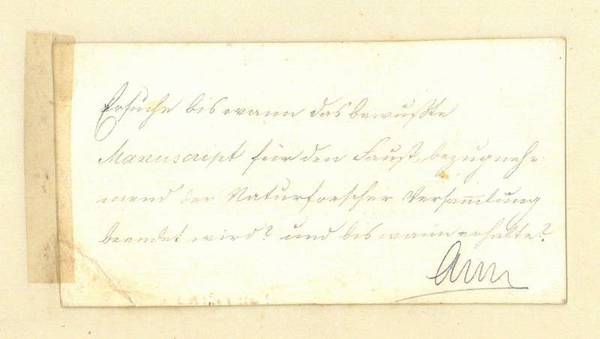 Ersuche bis wann das bewußte
Manuscript für den Faust, bezugneh¬
mend der Naturforscher Versammlung
beendet wird? und bis wann erhalte?